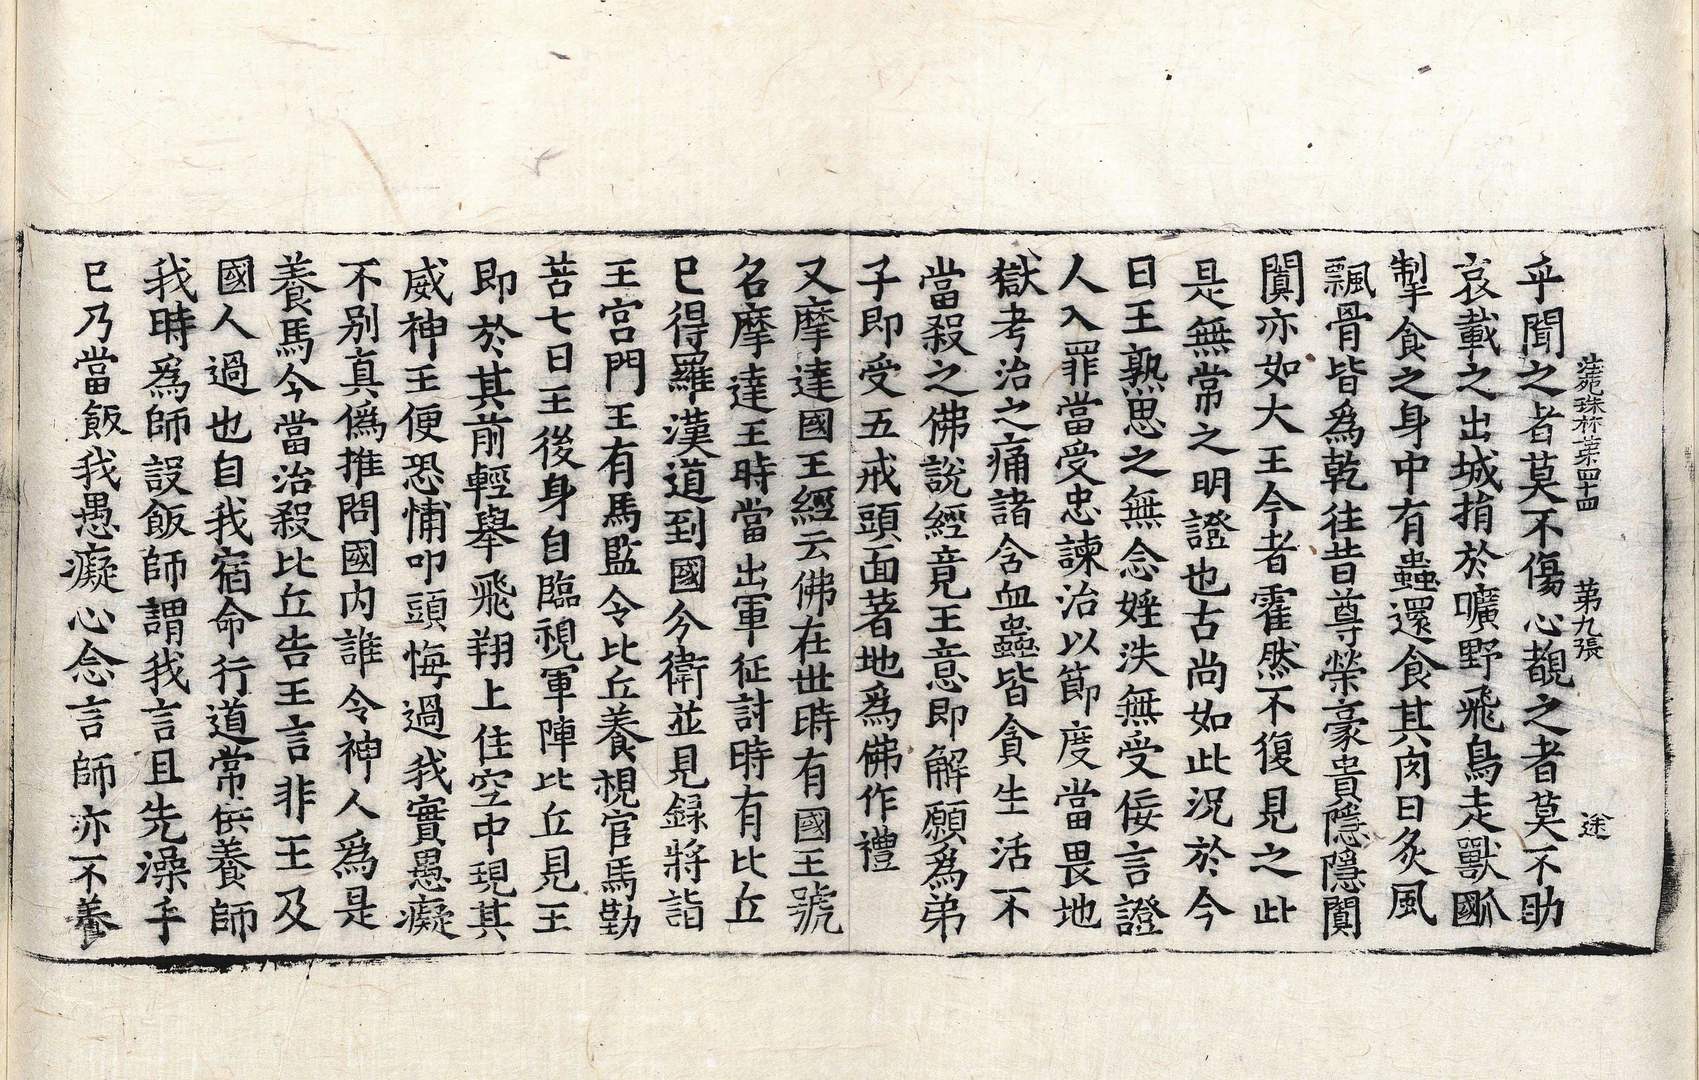 法苑珠林第四十四 第九張 途
乎聞之者莫不傷心覩之者莫不助
哀載之出城捐於曠野飛鳥走獸國㧓
掣食之身中有蟲還食其肉日炙風
飄骨皆爲乾往昔尊榮豪貴隱隱闐
闐亦如大王今者霍然不復見之此
是無常之明證也古尚如此況於今
日王熟思之無念婬泆無受佞言證
人入罪當受忠諫治以節度當畏地
獄考治之痛諸含血蟲皆貪生活不
當殺之佛說經竟王意即解願爲弟
子即受五戒頭面著地爲佛作禮
又摩達國王經云佛在世時有國王號
名摩達王時當出軍征討時有比丘
已得羅漢道到國今衛並見録將詣
王宮門王有馬監令比丘養視官馬勤
苦七日王後身自臨視軍陣比丘見王
即於其前輕舉飛翔上住空中現其
威神王便恐怖叩頭悔過我實愚癡
不別真僞推問國內誰令神人爲是
養馬今當治殺比丘告王言非王及
國人過也自我宿命行道常供養師
我時爲師設飯師謂我言且先澡手
已乃當飯我愚癡心念言師亦不養